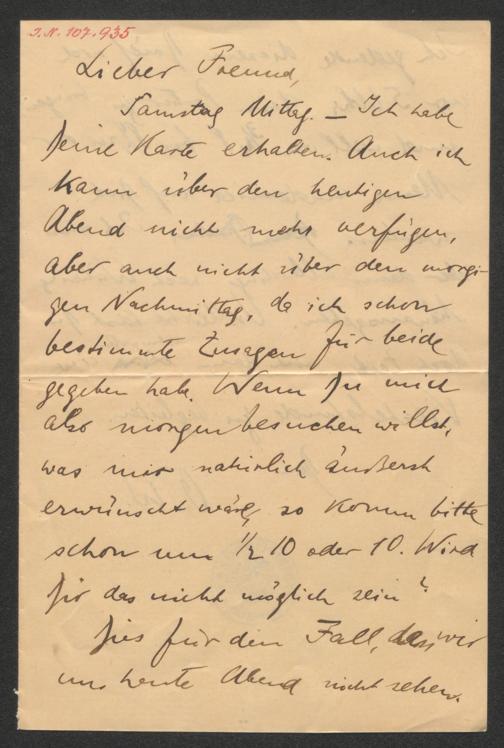 I.N. 107.935
Lieber Freund,
Samstag Mittag. – Ich habe
Deine Karte erhalten. Auch ich
kann über den heutigen
Abend nicht mehr verfügen,
aber auch nicht über den morgi-
gen Nachmittag, da ich schon
bestimmte Zusagen für beide
gegeben habe. Wenn Du mich
also morgen besuchen willst,
was mir natürlich äußerst
erwünscht wäre, so komm bitte
schon um 1/2 10 oder 10. Wird
Dir das nicht möglich sein?
Dies für den Fall, dass wir
uns heute Abend nicht sehen.